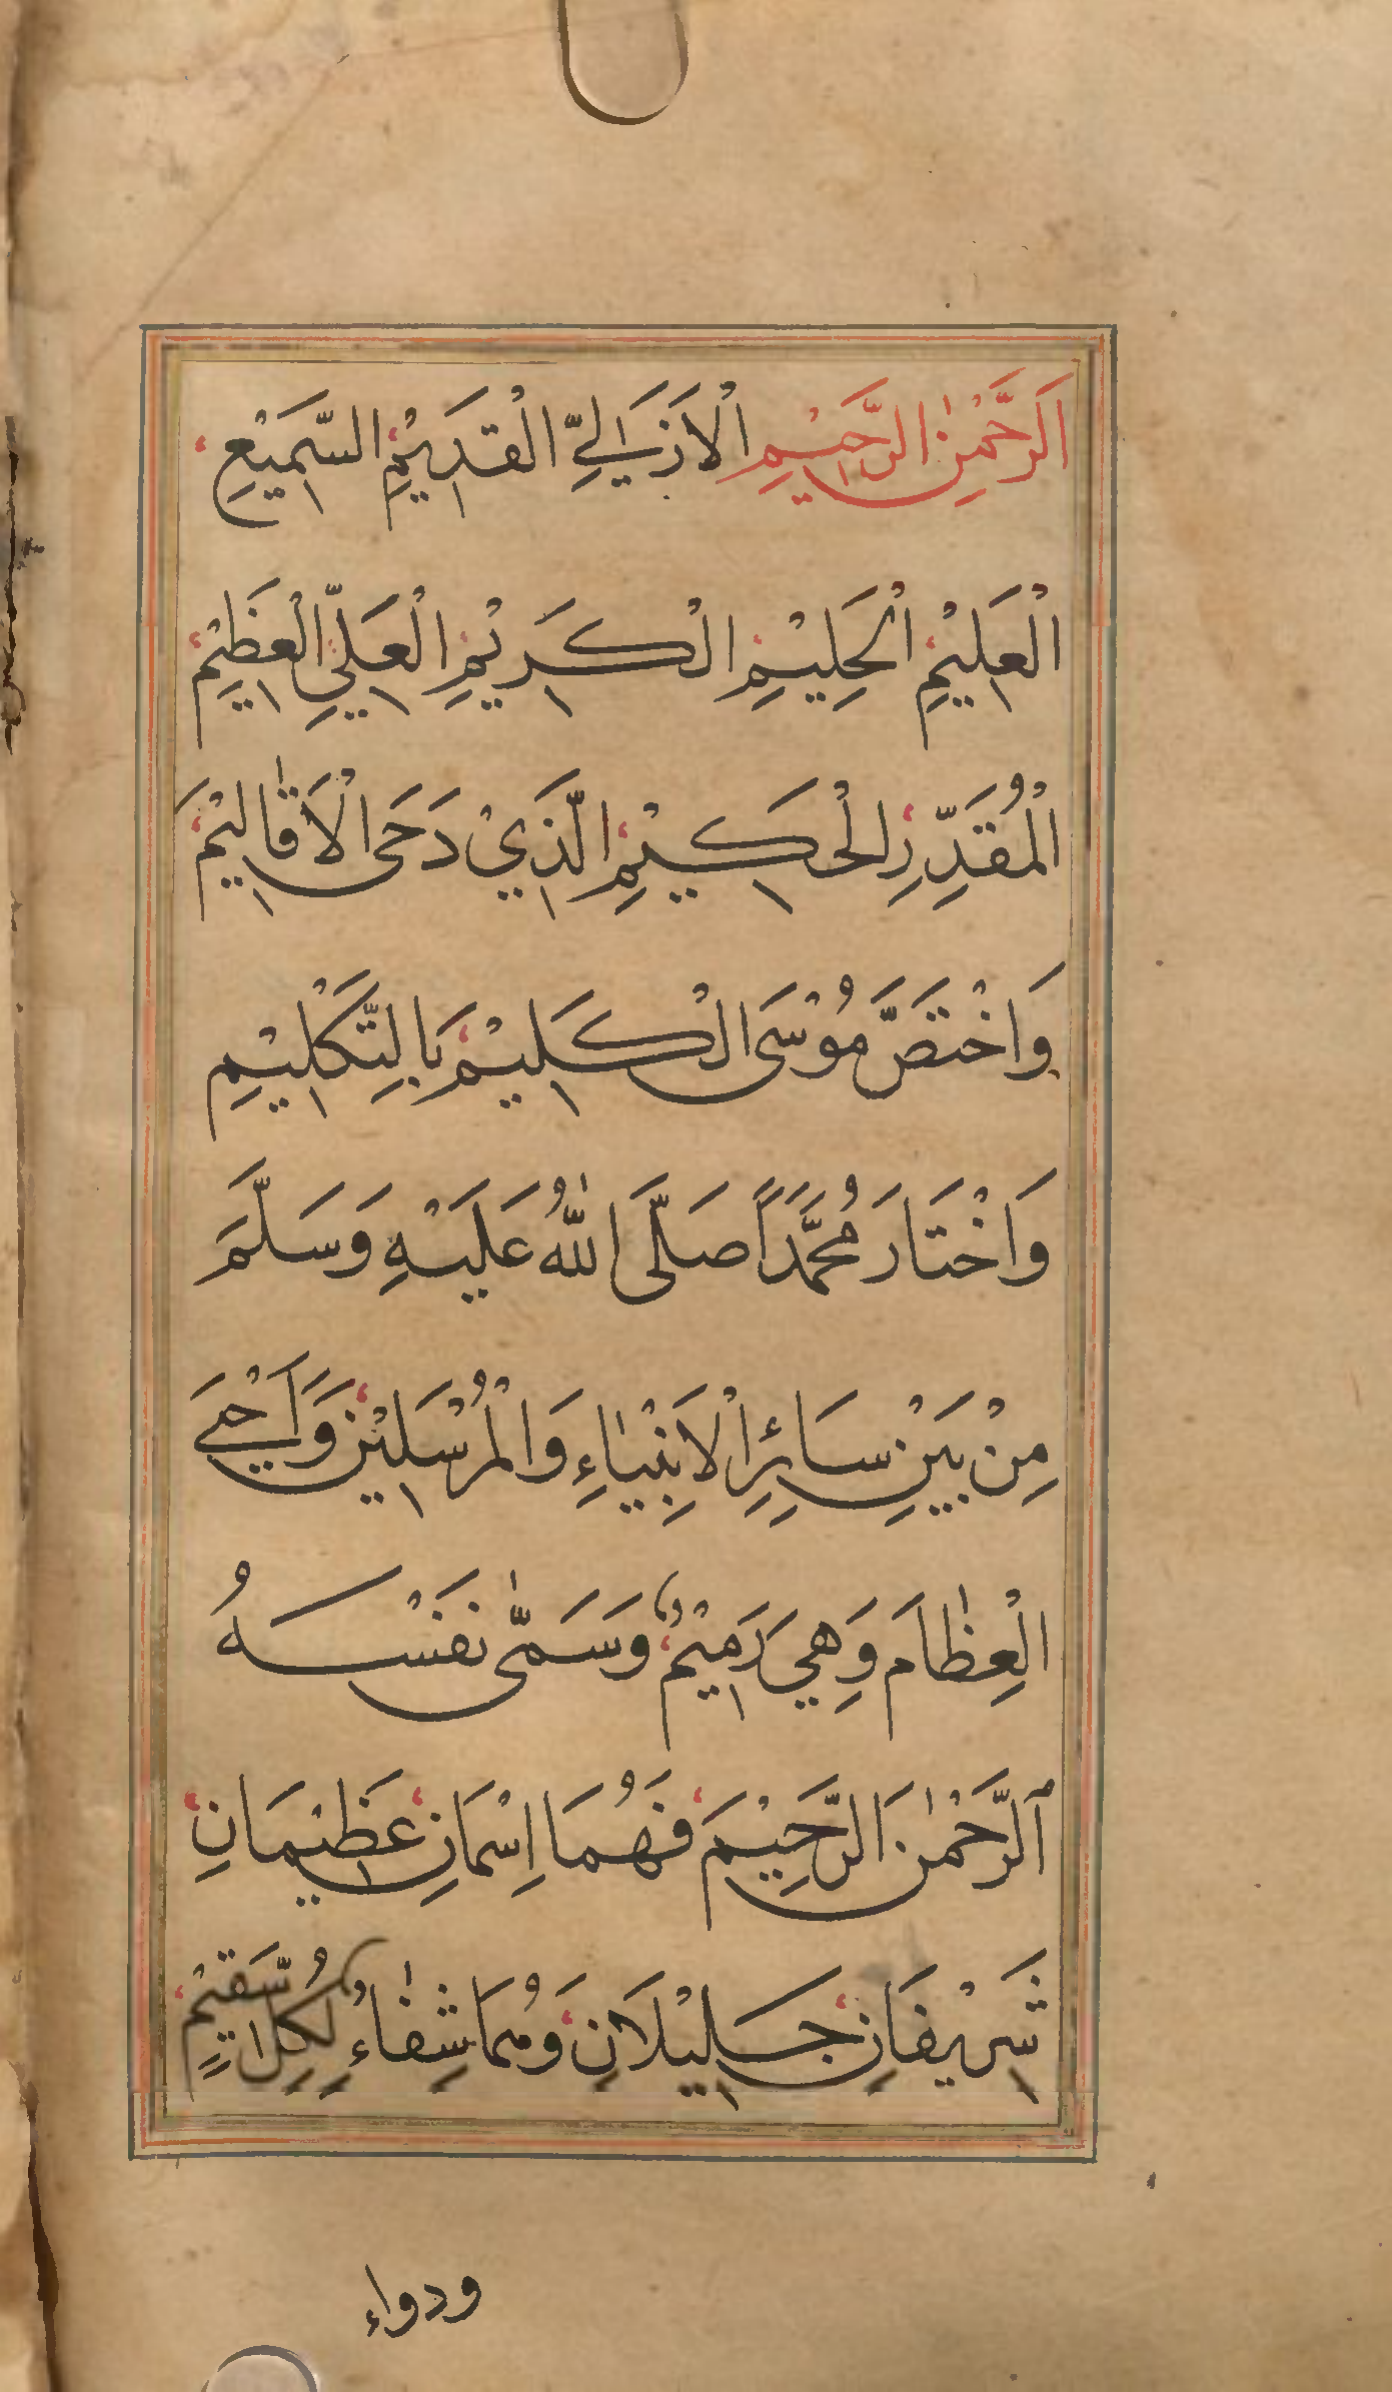 اَلرَّحْمٰنِ الرَّحِيْمِ الْاَزَلِيِّ الْقَدِيْمِ السَّمِيْعِ
الْعَلِيْمِ الْحَلِيْمِ الْكَرِيْمِ الْعَلِيِّ الْعَظِيْمِ
الْمُقَدِّرِ الْحَكِيْمِ الَّذِيْ دَحَى الْاَقَالِيْمَ
وَاخْتَصَّ مُوْسَى الْكَلِيْمَ بِالتَّكْلِيْمِ
وَاخْتَارَ مُحَمَّدًا صَلَّى اللّٰهُ عَلَيْهِ وَسَلَّمَ
مِنْ بَيْنِ سَائِرِ الْاَنْبِيَاءِ وَالْمُرْسَلِيْنَ وَاَحْيَى
الْعِظَامَ وَهِيَ رَمِيْمٌ وَسَمّٰى نَفْسَهُ
اَلرَّحْمٰنَ الرَّحِيْمَ فَهُمَا اِسْمَانِ عَظِيْمَانِ
شَرِيْفَانِ جَلِيْلَانِ وَهُمَا شِفَاءٌ لِكُلِّ سَقِيْمٍ
ودواء